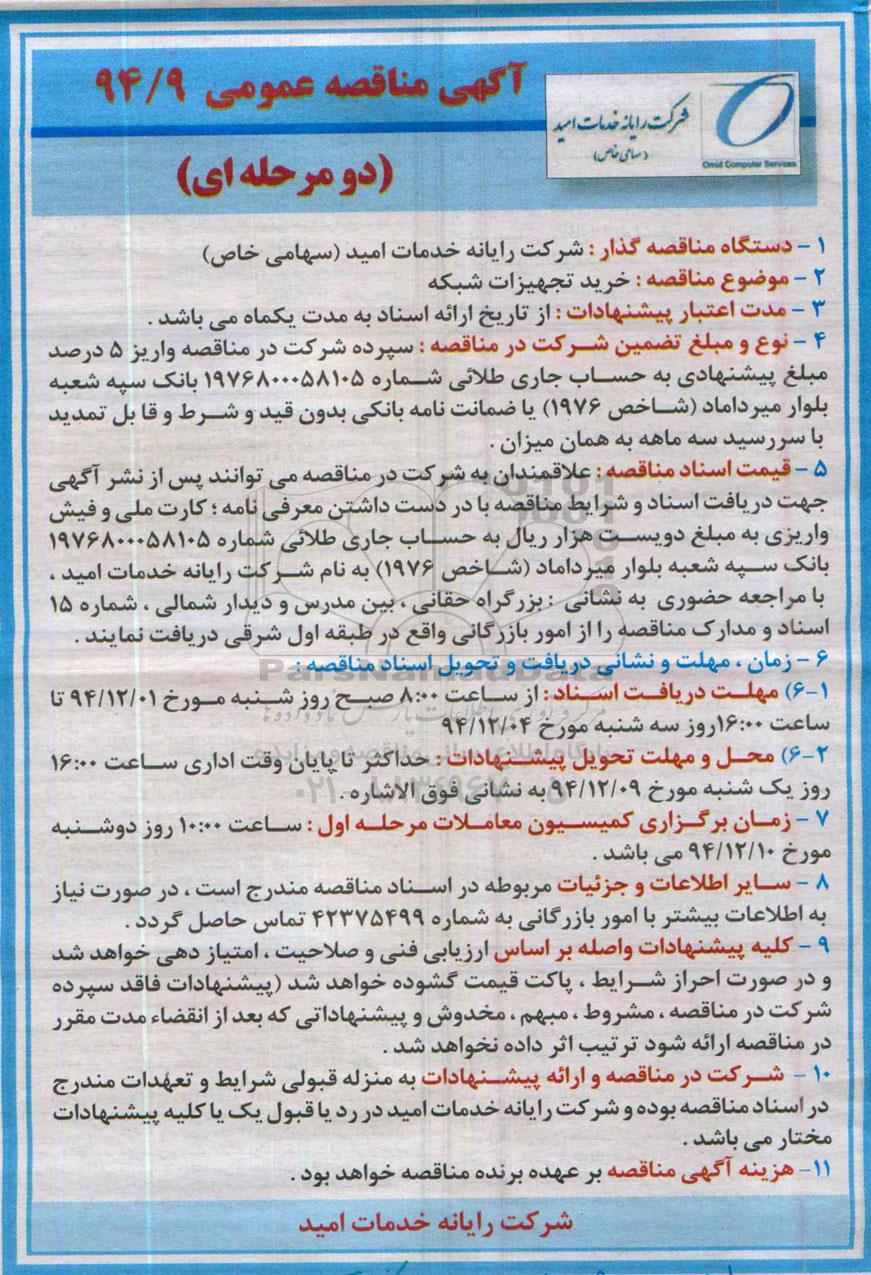 آگهی مناقصه عمومی ۹۴/۹
(دو مرحله ای)
شرکت رایانه خدمات امید
(سهامی خاص)
Omid Computer Services
۱ - دستگاه مناقصه گذار : شرکت رایانه خدمات امید (سهامی خاص)
۲ - موضوع مناقصه : خرید تجهیزات شبکه
۳ - مدت اعتبار پیشنهادات : از تاریخ ارائه اسناد به مدت یکماه می باشد .
۴ - نوع و مبلغ تضمین شرکت در مناقصه : سپرده شرکت در مناقصه واریز ۵ درصد
مبلغ پیشنهادی به حساب جاری طلائی شماره ۱۹۷۶۸۰۰۰۵۸۱۰۵ بانک سپه شعبه
بلوار میرداماد (شاخص ۱۹۷۶) یا ضمانت نامه بانکی بدون قید و شرط و قابل تمدید
با سررسید سه ماهه به همان میزان .
۵ - قیمت اسناد مناقصه : علاقمندان به شرکت در مناقصه می توانند پس از نشر آگهی
جهت دریافت اسناد و شرایط مناقصه با در دست داشتن معرفی نامه ؛ کارت ملی و فیش
واریزی به مبلغ دویست هزار ریال به حساب جاری طلائی شماره ۱۹۷۶۸۰۰۰۵۸۱۰۵
بانک سپه شعبه بلوار میرداماد (شاخص ۱۹۷۶) به نام شرکت رایانه خدمات امید ،
با مراجعه حضوری به نشانی : بزرگراه حقانی ، بین مدرس و دیدار شمالی ، شماره ۱۵
اسناد و مدارک مناقصه را از امور بازرگانی واقع در طبقه اول شرقی دریافت نمایند .
۶ - زمان ، مهلت و نشانی دریافت و تحویل اسناد مناقصه :
۶-۱) مهلت دریافت اسناد : از ساعت ۸:۰۰ صبح روز شنبه مورخ ۹۴/۱۲/۰۱ تا
ساعت ۱۶:۰۰روز سه شنبه مورخ ۹۴/۱۲/۰۴
۶-۲) محل و مهلت تحویل پیشنهادات : حداکثر تا پایان وقت اداری ساعت ۱۶:۰۰
روز یک شنبه مورخ ۹۴/۱۲/۰۹ به نشانی فوق الاشاره .
۷ - زمان برگزاری کمیسیون معاملات مرحله اول : ساعت ۱۰:۰۰ روز دوشنبه
مورخ ۹۴/۱۲/۱۰ می باشد .
۸ - سایر اطلاعات و جزئیات مربوطه در اسناد مناقصه مندرج است ، در صورت نیاز
به اطلاعات بیشتر با امور بازرگانی به شماره ۴۲۳۷۵۴۹۹ تماس حاصل گردد .
۹ - کلیه پیشنهادات واصله بر اساس ارزیابی فنی و صلاحیت ، امتیاز دهی خواهد شد
و در صورت احراز شرایط ، پاکت قیمت گشوده خواهد شد (پیشنهادات فاقد سپرده
شرکت در مناقصه ، مشروط ، مبهم ، مخدوش و پیشنهاداتی که بعد از انقضاء مدت مقرر
در مناقصه ارائه شود ترتیب اثر داده نخواهد شد .
۱۰ - شرکت در مناقصه و ارائه پیشنهادات به منزله قبولی شرایط و تعهدات مندرج
در اسناد مناقصه بوده و شرکت رایانه خدمات امید در رد یا قبول یک یا کلیه پیشنهادات
مختار می باشد .
۱۱- هزینه آگهی مناقصه بر عهده برنده مناقصه خواهد بود .
شرکت رایانه خدمات امید